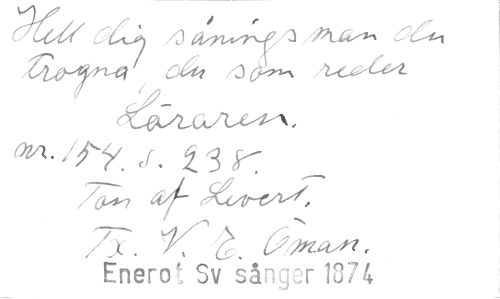 Hell dig såningsman du
trogna, du som reder
Läraren.
nr. 154. s. 238.
Ton af Severt.
Tx. V. E. Öman.
Enerot Sv sånger 1874